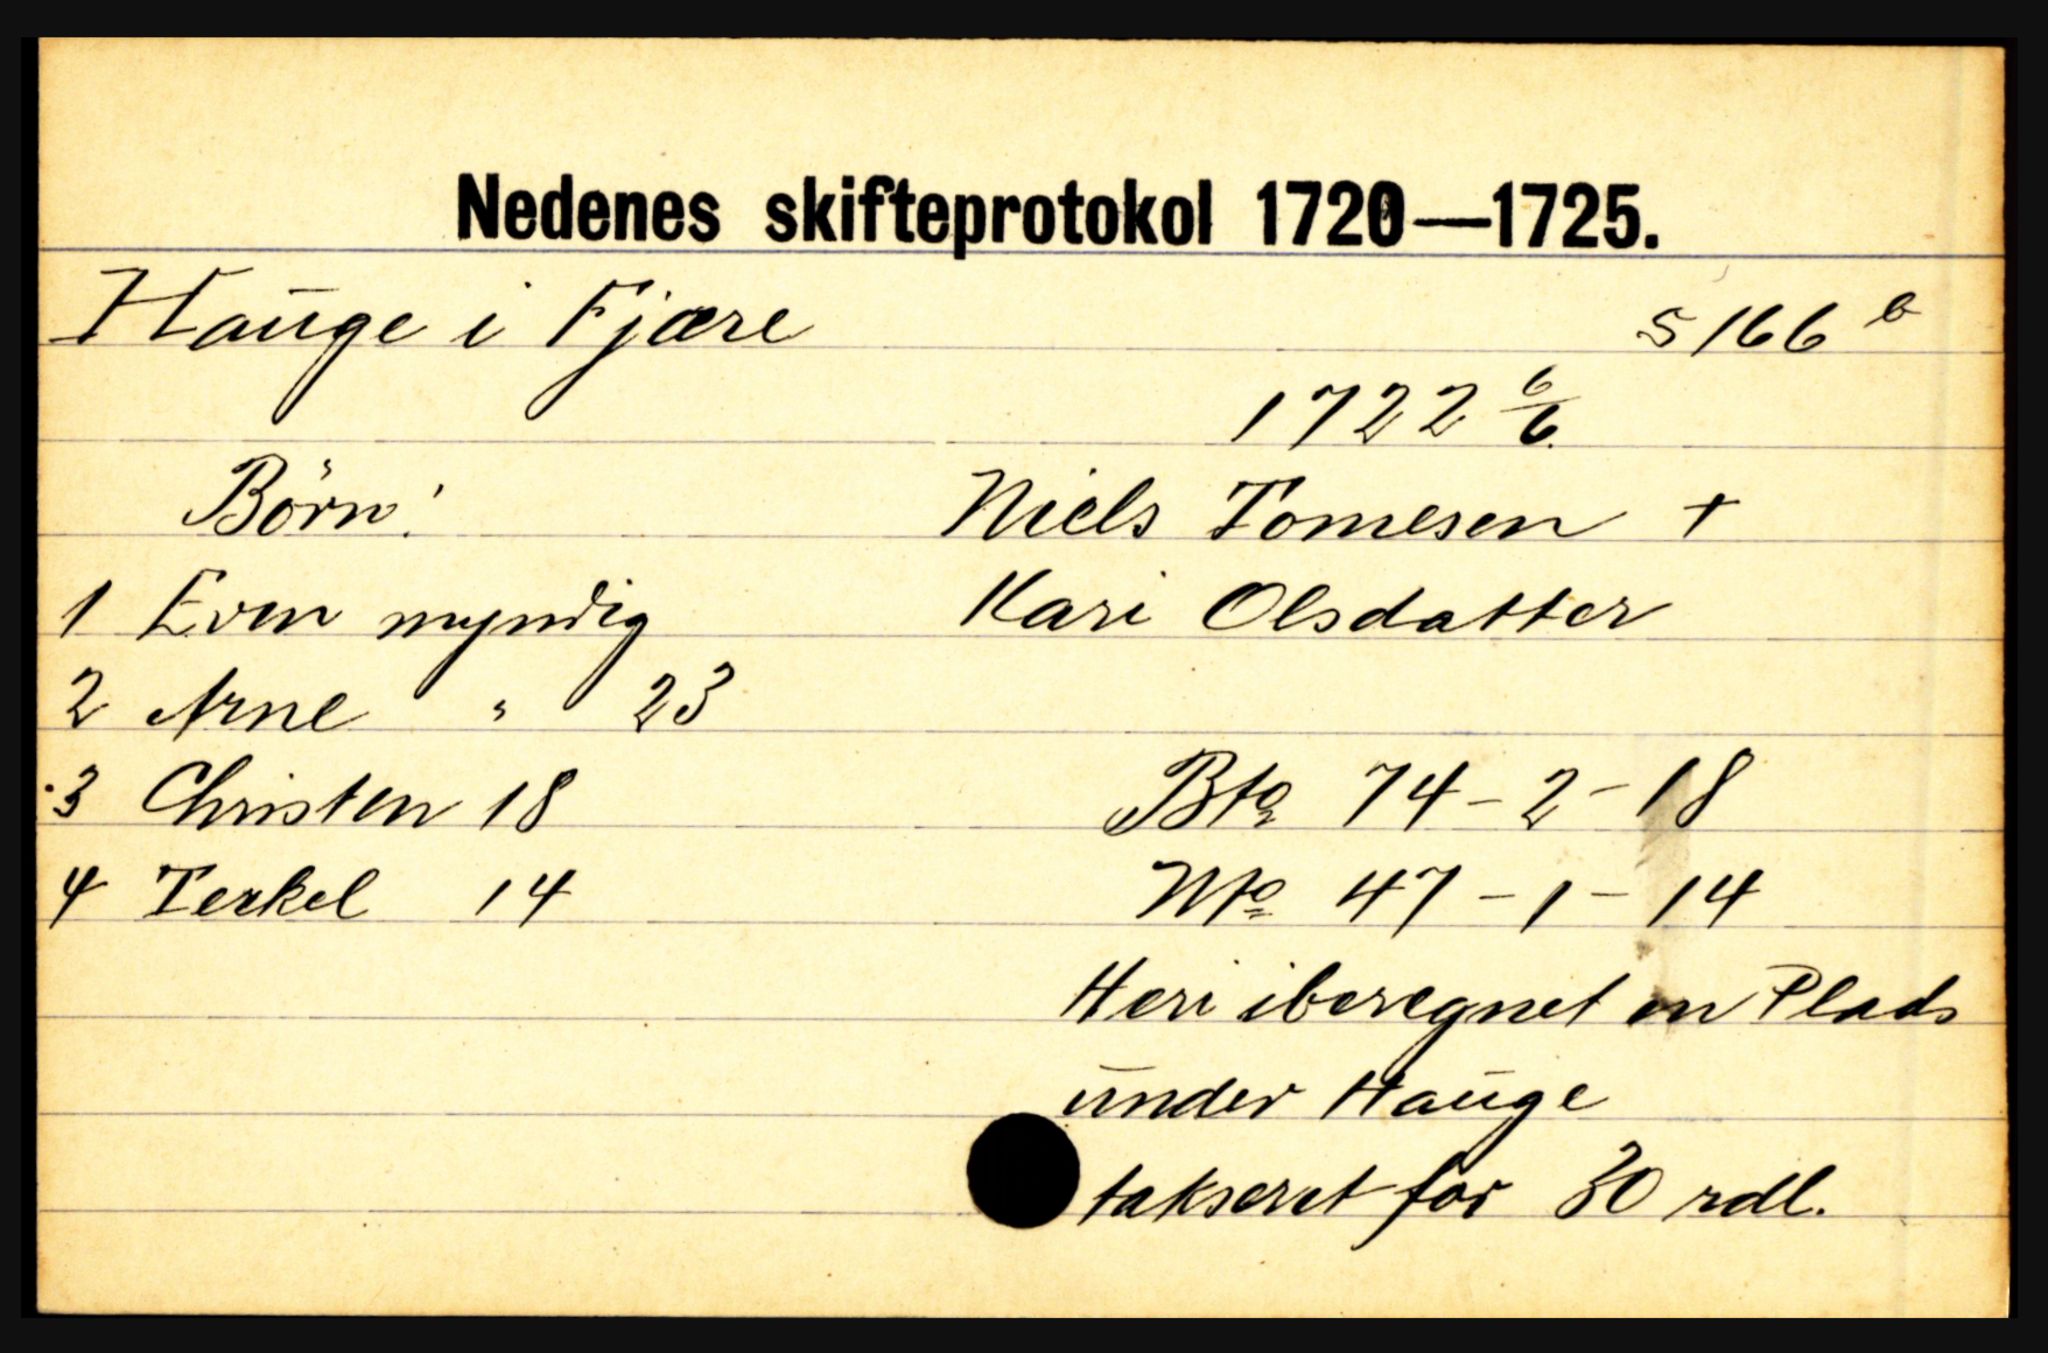 Nedenes skifteprotokol 1720—1725.
Hauge i Fjære S 166 b
1722 6/6
Börn: Niels Tomesen +
1 Even myndig Kari Olsdatter
2 Arne " 23
3 Christen 18 Bto 74-2-18
4 Terkel 14 Nto 47-1-14
Heri iberegnet en Plads
under Hauge
takseret for 30 rdl.